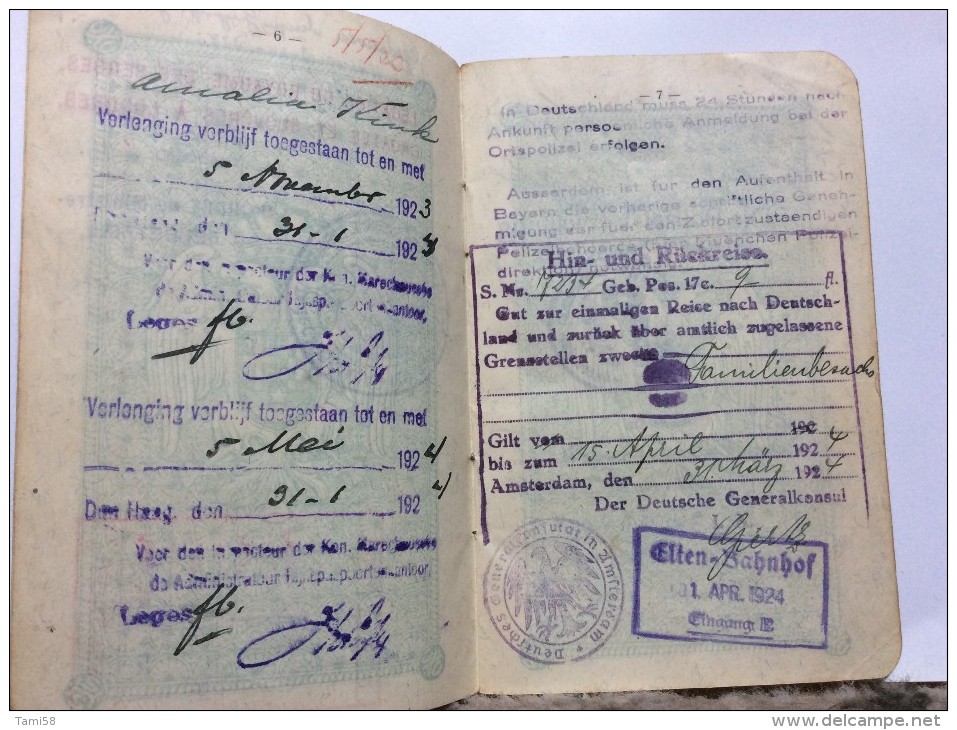 — 6 —
Amalia
Verlenging verblijf toegestaan tot en met
5 November 1923
den 31-1 192
Voor den Inspecteur der Kon. Marechaussee
de Administrateur Rijkspaspoortenkantoor,
Leges fb.
Verlenging verblijf toegestaan tot en met
5 Mei 1924
Den Haag, den 31-1 1924
Voor den Inspecteur der Kon. Marechaussee
de Administrateur Rijkspaspoortenkantoor,
Leges fb.
— 7 —
In Deutschland muss 24 Stunden nach
Ankunft persoenliche Anmeldung bei der
Ortspolizei erfolgen.
Ausserdem ist fur den Aufenthalt in
Bayern die vorherige schriftliche Geneh-
migung der fuer den Zufort zustaendigen
Polizeibehoerde (fuer Muenchen Polizei-
direktion) notwendig.
Hin- und Rückreise.
S. Nr. 17234 Geb. Pos. 17c. 9 fl.
Gut zur einmaligen Reise nach Deutsch-
land und zurück über amtlich zugelassene
Grenzstellen zwecks Familienbesuchs
Gilt vom 192
bis zum 15. April 1924
Amsterdam, den 31. März 1924
Der Deutsche Generalkonsul
Deutsches Generalkonsulat in Amsterdam *
Elten-Bahnhof
01. APR. 1924
Eingang E
Tami58
www.delcampe.net